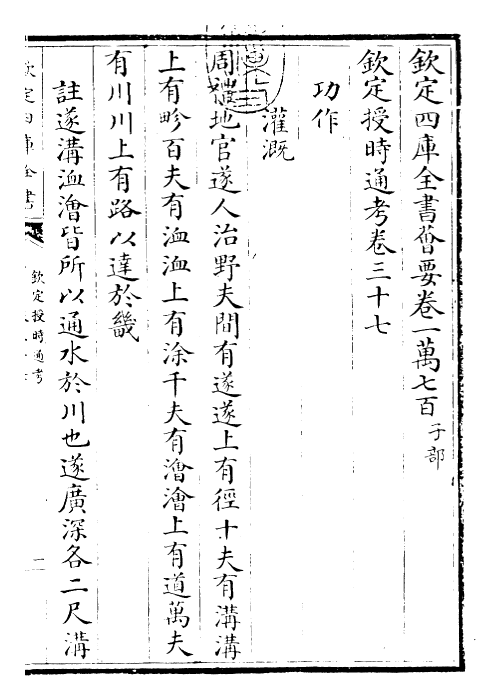 欽定四庫全書薈要卷一萬七百 子部
欽定授時通考卷三十七
功作
灌溉
周禮地官遂人治野夫間有遂遂上有徑十夫有溝溝
上有畛百夫有洫洫上有涂千夫有澮澮上有道萬夫
有川川上有路以達於畿
註遂溝洫澮皆所以通水於川也遂廣深各二尺溝
欽定四庫全書
欽定授時通考